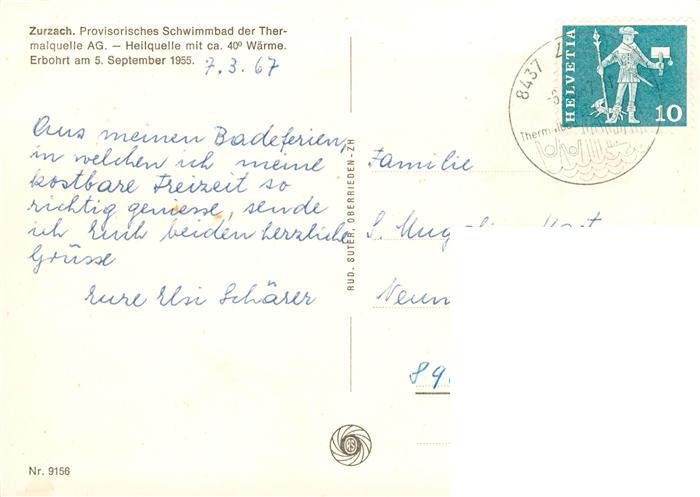 Zurzach. Provisorisches Schwimmbad der Ther-
malquelle AG. — Heilquelle mit ca. 40° Wärme.
Erbohrt am 5. September 1955.
7.3.67
Aus meinen Badeferien,
in welchen ich meine
kostbare Freizeit so
richtig geniesse, sende
ich Euch beiden herzliche
Grüsse
Eure Elsi Schärer
Nr. 9156
RUD. SUTER, OBERRIEDEN-ZH
8437
HELVETIA
10
Familie
S.
89